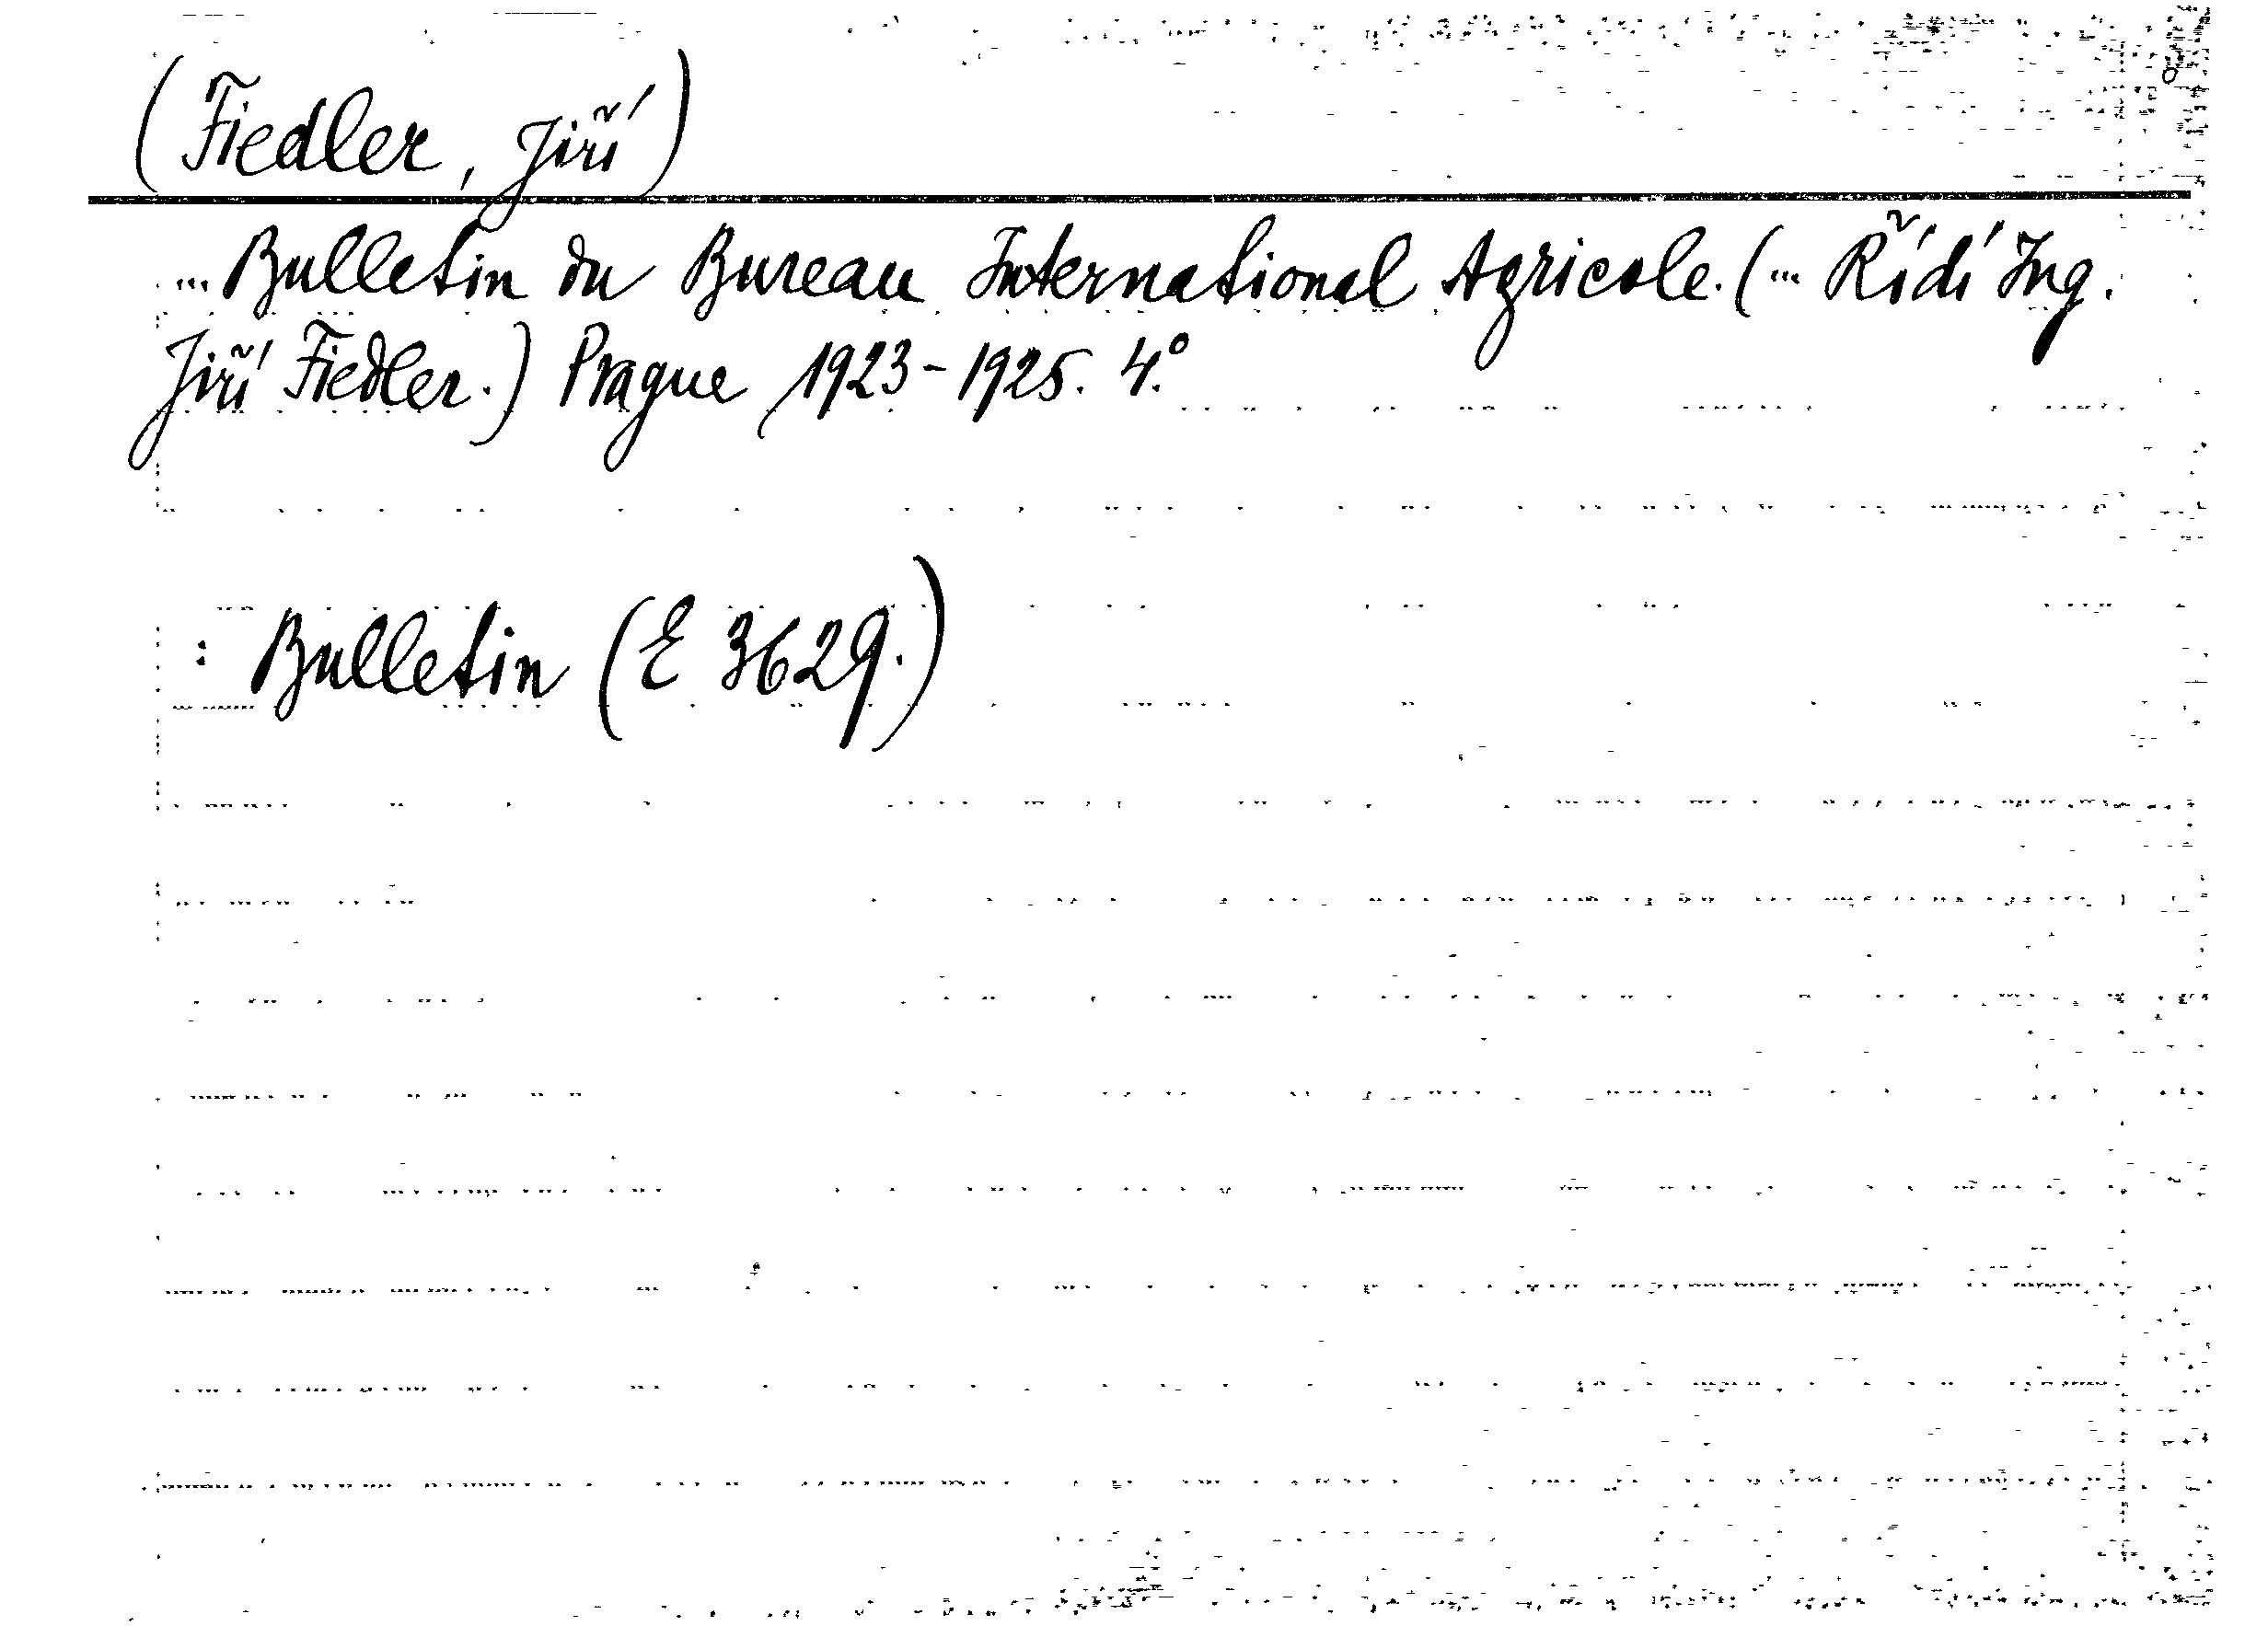 (Fiedler, Jiří)
... Bulletin du Bureau International Agricole. (... Řídí Ing.
Jiří Fiedler.) Prague 1923-1925. 4.°
: Bulletin (E 3629.)